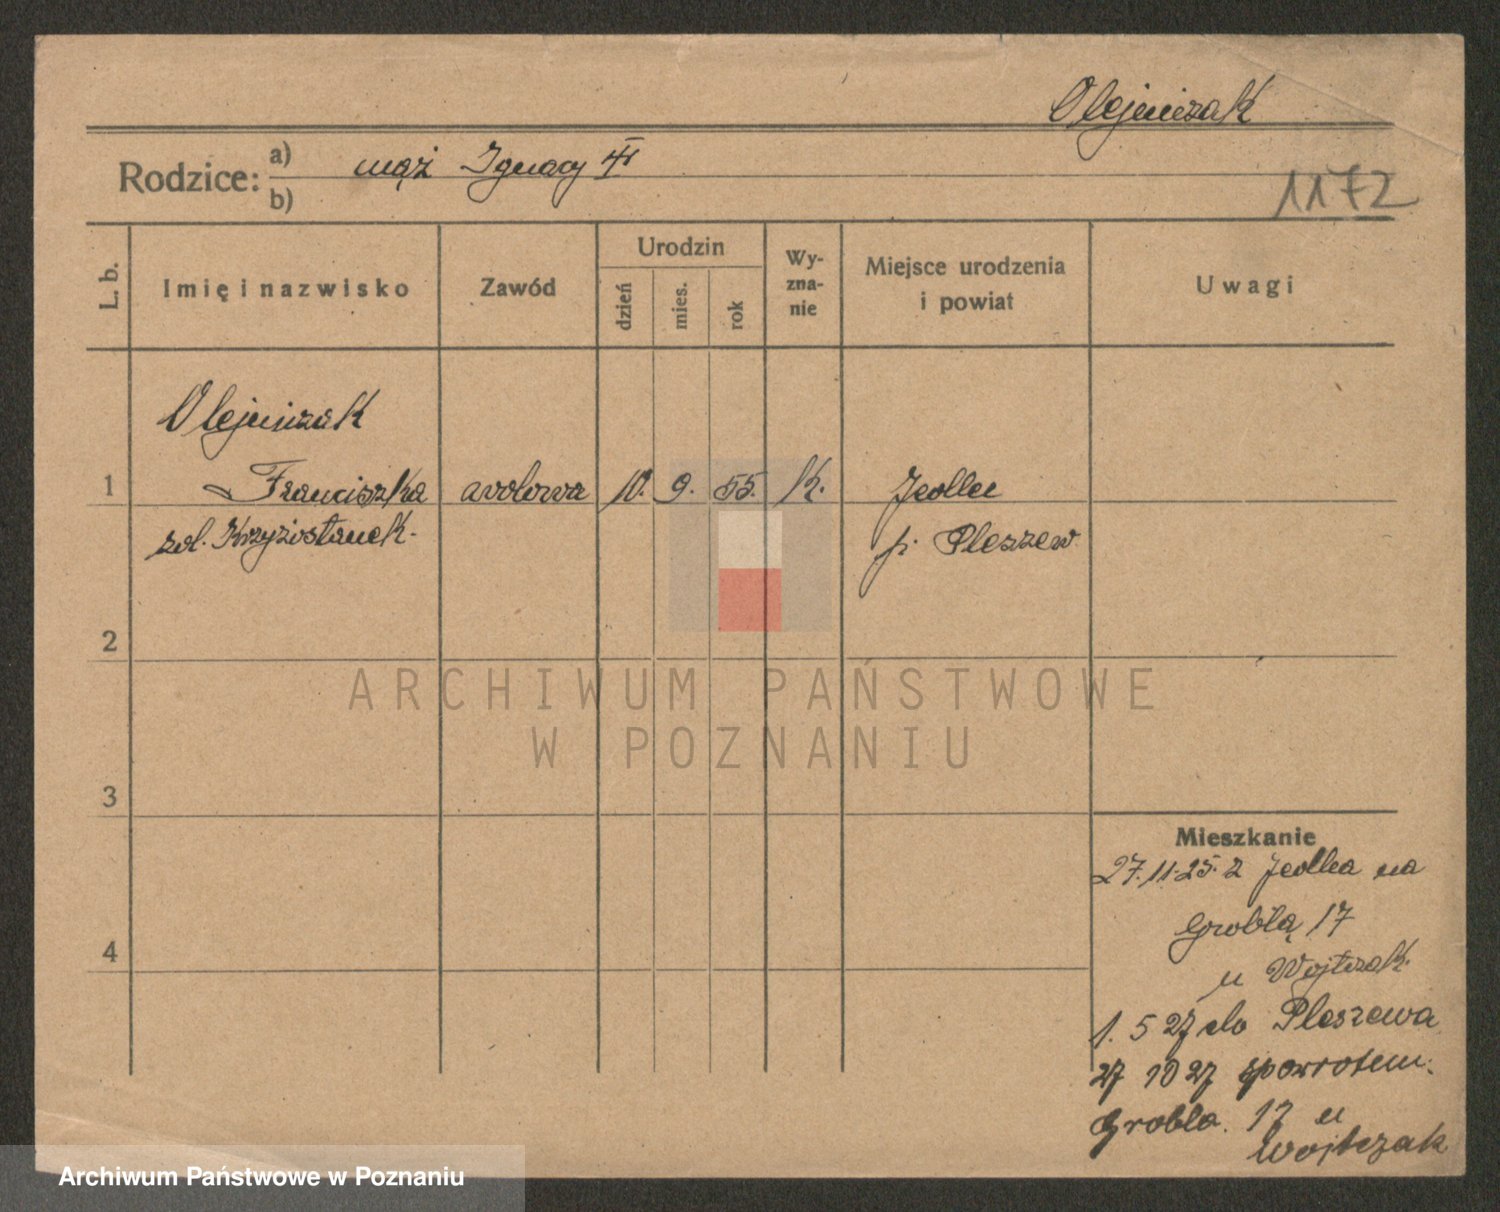 Olejniczak
Rodzice: a) mąż Ignacy
b)
1172
L. b.
Imię i nazwisko
Zawód
Urodzin
dzień
mies.
rok
Wy-
zna-
nie
Miejsce urodzenia
i powiat
Uwagi
Olejniczak
1 Franciszka wdowa 10. 9. 55. K. Jedlec
p. Pleszew
2
3
4
Mieszkanie
27.11.25. z Jedlca na
Groblą 17
u Wojtczak.
1. 5 27 do Pleszewa
27 10 27 spowrotem.
Grobla. 17 u
Wojtczak
ARCHIWUM PAŃSTWOWE
W POZNANIU
Archiwum Państwowe w Poznaniu